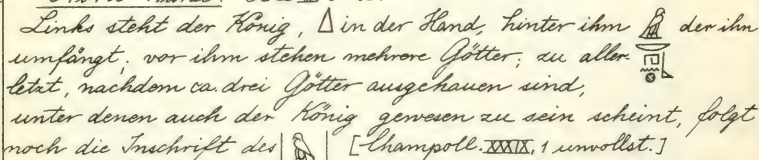 Links steht der König, △ in der Hand, hinter ihm der ihn
umfängt; vor ihm stehen mehrere Götter; zu aller
letzt, nachdem ca. drei Götter ausgehauen sind,
unter denen auch der König gewesen zu sein scheint, folgt
noch die Inschrift des [Champoll. XXXIX, 1 unvollst.]